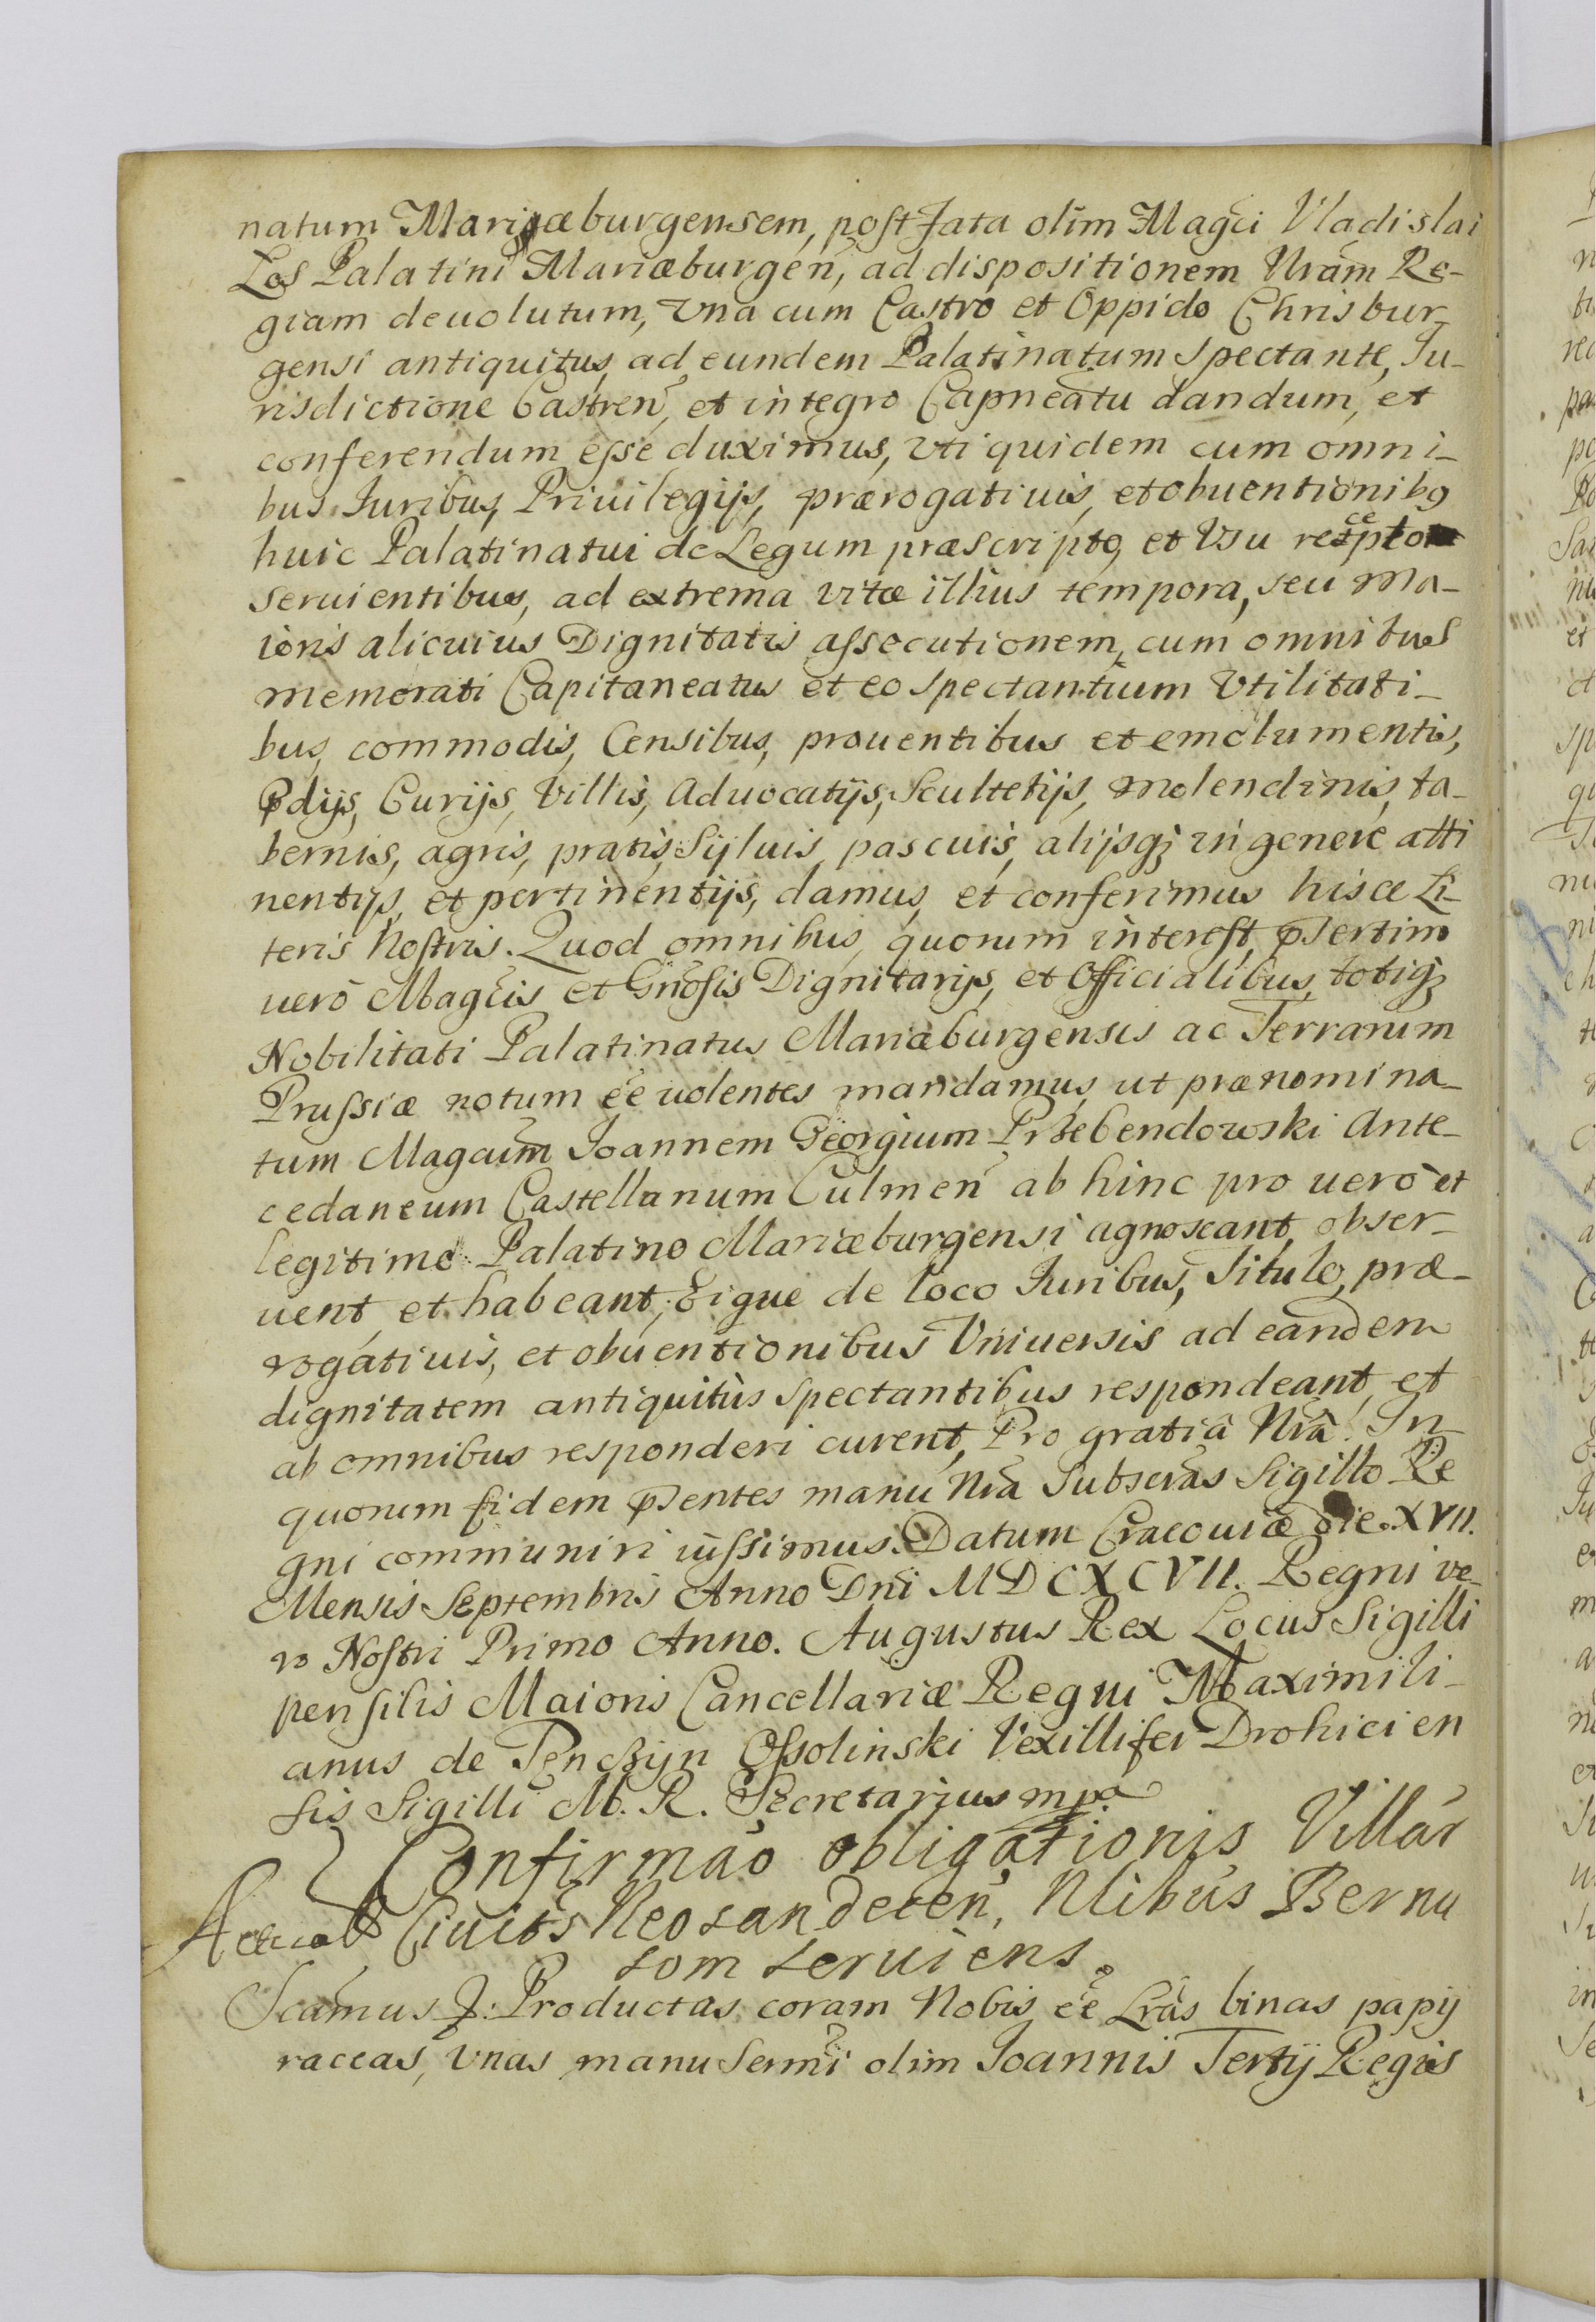 natum Mariæburgensem, post fata olim Magci Vladislai
Los Palatini Mariæburgen, ad dispositionem Nram Re-
giam deuolutum, Vna cum Castro et Oppido Chrisbur-
gensi antiquitus, ad eundem Palatinatum spectante, Iu-
risdictione Castren, et integro Capneatu dandum, et
conferendum esse duximus, vti quidem cum omni-
bus Iuribus, Priuilegijs, prærogatiuis, et obuentionibq
huic Palatinatui de Legum præscripto, et Vsu recepto
seruientibus, ad extrema vitæ illius tempora, seu Ma-
ioris alicuius Dignitatis assecutionem, cum omnibus
memorati Capitaneatus et eo spectantium Vtilitati-
bus, commodis, Censibus, prouentibus et emolumentis,
Pdijs, Curijs, Villis, Aduocatijs, Scultetijs, molendinis, ta-
bernis, agris, pratis, Syluis, pascuis, alijsq in genere atti
nentijs, et pertinentijs, damus, et conferimus hisce Li-
teris Nostris. Quod omnibus, quorum interest, psertim
uero Magcis et Gnosis Dignitarijs, et Officialibus, totiq
Nobilitati Palatinatus Mariæburgensis ac Terrarum
Prussiæ notum ee uolentes mandamus, ut prænomina-
tum Magcum Ioannem Georgium Przebendowski Ante-
cedaneum Castellanum Culmen ab hinc pro uero et
legitimo Palatino Mariæburgensi agnoscant, obser-
uent, et habeant, eique de loco Iuribus, Titulo, præ-
rogatiuis, et obuentionibus Vniuersis ad eandem
dignitatem antiquitùs spectantibus respondeant, et
ab omnibus responderi curent, Pro gratiâ Nrâ. In
quorum fidem psentes manu Nra Subscras Sigillo Re
gni communiri iussimus. Datum Cracouiæ die XVII.
Mensis Septembris Anno Dni MDCXCVII. Regni ve-
ro Nostri Primo Anno. Augustus Rex Locus Sigilli
pensilis Maioris Cancellariæ Regni Maximili-
anus de Tenczyn Ossolinski Vexillifer Drohicien
sis Sigilli M. R. Secretarius mpa
Confirmao obligationis Villar
Ciuits Neosandecen, Nlibus Bernu
som seruiens.
Scamus &: Productas coram Nobis ee Lras binas papy
raceas, Vnas manu Sermi olim Ioannis Tertij Regis